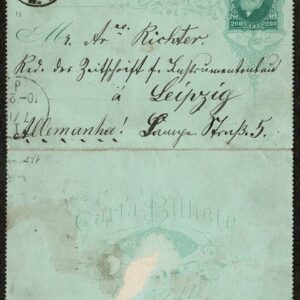 200 200
M. Arno. Richter.
Red. des Zeitschrift f. Instrumentenbau
à Leipzig
Allemanha! Lange Straße 5.
Carta-Bilhete